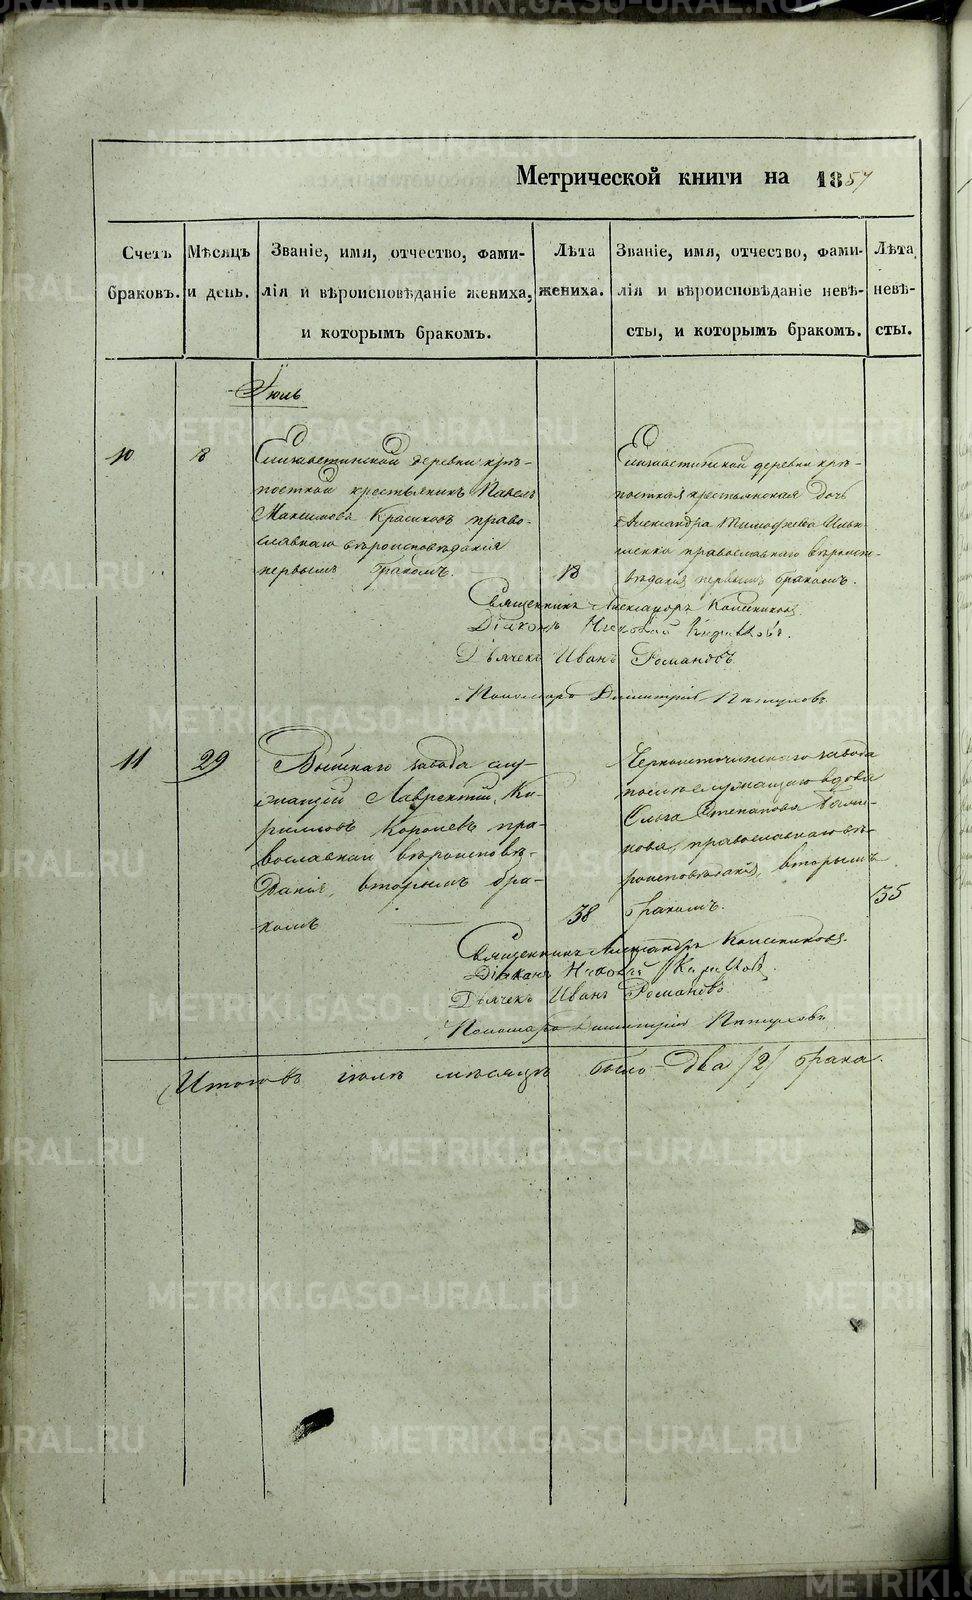 Метрической книги на 1857
Счетъ браковъ.
Мѣсяцъ и день.
Званіе, имя, отчество, фами-
лія и вѣроисповѣданіе жениха,
и которымъ бракомъ.
Лѣта жениха.
Званіе, имя, отчество, фами-
лія и вѣроисповѣданіе невѣ-
сты, и которымъ бракомъ.
Лѣта невѣ-
сты.
Іюль
10
8
Елизаветинской деревни крѣ-
постной крестьянинъ Павелъ
Максимовъ Красиковъ право-
славнаго вѣроисповѣданія
первымъ бракомъ.
18
Елизаветинской деревни крѣ-
постная крестьянская дочь
Александра Тимофеева
православнаго вѣроиспо-
вѣданія первымъ бракомъ.
Священникъ Александръ
Діаконъ Николай
Дьячекъ Иванъ Романовъ
Пономарь Димитрій
11
29
Выйскаго завода слу-
жащій Лаврентій Ки-
рилловъ Королевъ пра-
вославнаго вѣроисповѣ-
данія, вторымъ бра-
комъ
38
Черноисточинскаго завода
послѣ служащаго вдова
Ольга Степанова
православнаго вѣ-
роисповѣданія, вторымъ
бракомъ.
35
Священникъ Александръ
Діаконъ Николай
Дьячекъ Иванъ Романовъ
Пономарь Димитрій
Итого въ іюлѣ мѣсяцѣ было два /2/ брака.
METRIKI.GASO-URAL.RU